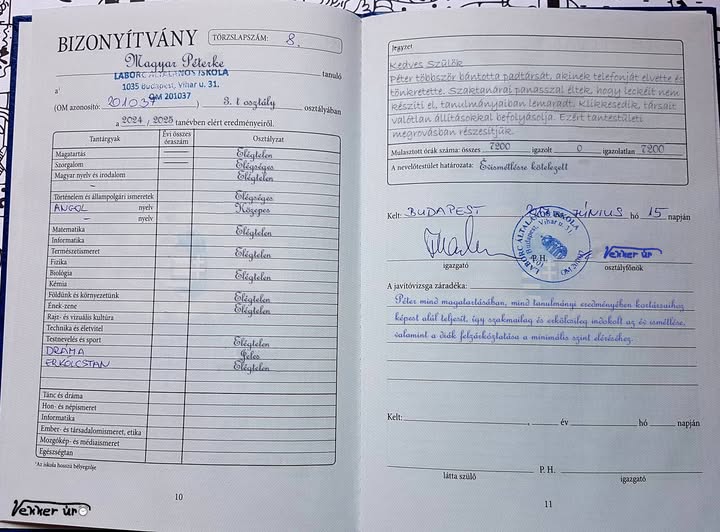 BIZONYÍTVÁNY
TÖRZSLAPSZÁM: 8.
Magyar Péterke
tanuló
LABORC ÁLTALÁNOS ISKOLA
1035 Budapest, Vihar u. 31.
OM 201037
a¹
(OM azonosító: 201037) 3. t osztály osztályában
a 2024/2025 tanévben elért eredményeiről.
Tantárgyak Évi összes óraszám Osztályzat
Magatartás Elégtelen
Szorgalom Elégséges
Magyar nyelv és irodalom Elégtelen
–
Történelem és állampolgári ismeretek Elégséges
ANGOL nyelv Közepes
– nyelv
Matematika Elégtelen
Informatika
Természetismeret Elégtelen
Fizika
Biológia Elégtelen
Kémia
Földünk és környezetünk Elégtelen
Ének-zene Elégtelen
Rajz- és vizuális kultúra
Technika és életvitel
Testnevelés és sport Elégtelen
DRÁMA Jeles
ERKÖLCSTAN Elégtelen
Tánc és dráma
Hon- és népismeret
Informatika
Ember- és társadalomismeret, etika
Mozgókép- és médiaismeret
Egészségtan
¹Az iskola hosszú bélyegzője
10
Vekker úr
Jegyzet
Kedves Szülők
Péter többször bántotta padtársát, akinek telefonját elvette és
tönkretette. Szaktanárai panasszal éltek, hogy leckéit nem
készíti el, tanulmányaiban lemaradt. Klikkesedik, társait
valótlan állításokkal befolyásolja. Ezért tantestületi
megrovásban részesítjük.
Mulasztott órák száma: összes 7200 igazolt 0 igazolatlan 7200
A nevelőtestület határozata: Évismétlésre kötelezett
Kelt: BUDAPEST JÚNIUS hó 15 napján
LABORC ÁLTALÁNOS ISKOLA
Budapest, Vihar u. 31.
P. H.
Vekker úr
igazgató
osztályfőnök
A javítóvizsga záradéka:
Péter mind magatartásában, mind tanulmányi eredményében kortársaihoz
képest alul teljesít, így szakmailag és erkölcsileg indokolt az év ismétlése,
valamint a diák felzárkóztatása a minimális szint eléréséhez.
Kelt: , év hó napján
P. H.
látta szülő
igazgató
11